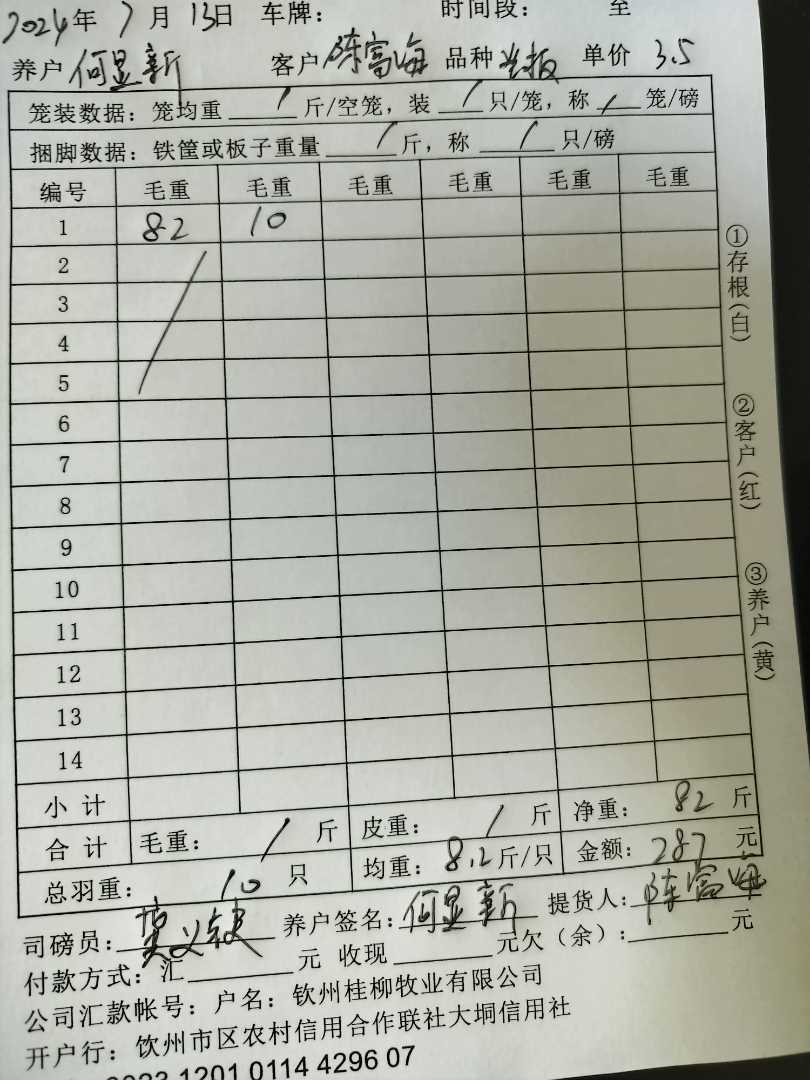 2024年 7月 13日 车牌: 时间段: 至
养户 何显新 客户 陈富海 品种 单价 3.5
笼装数据: 笼均重 / 斤/空笼, 装 / 只/笼, 称 / 笼/磅
捆脚数据: 铁筐或板子重量 / 斤, 称 / 只/磅
编号 毛重 毛重 毛重 毛重 毛重 毛重
1 82 10
2
3
4
5
6
7
8
9
10
11
12
13
14
小计
合计 毛重: / 斤 皮重: / 斤 净重: 82 斤
总羽重: 10 只 均重: 8.2 斤/只 金额: 287 元
司磅员: 养户签名: 何显新 提货人: 陈富海
付款方式: 汇 元 收现 元欠(余): 元
公司汇款帐号: 户名: 钦州桂柳牧业有限公司
开户行: 钦州市区农村信用合作联社大垌信用社
1201 0114 4296 07
①存根(白)
②客户(红)
③养户(黄)